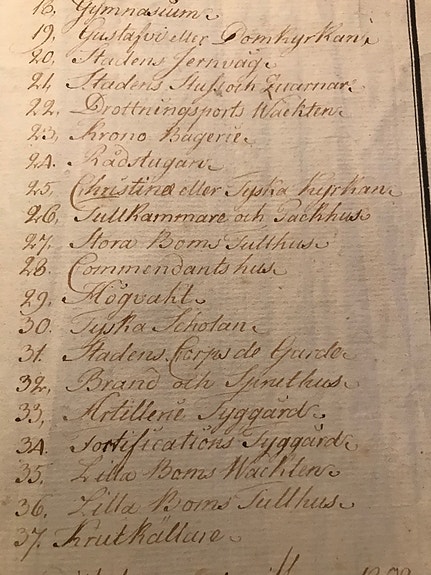 18, Gymnasium
19, Gustafvi eller Domkyrkan
20. Stadens Jernvåg
21 Stadens Stuf och Quarnar
22, Drottningsports Wackten
23, Krono Bagerie
24. Rådstugan
25, Christinæ eller Tyska Kyrkan
26, Tullkammare och Packhus
27. Stora Boms Tullhus
28. Commendants hus
29. Högvakt
30. Tyska Scholan
31. Stadens Corps de Garde
32, Brand och Spruthus
33, Artillerie Tyggård
34. Fortifications Tyggård
35. Lilla Boms Wackten
36. Lilla Boms Tullhus
37. Krutkällare